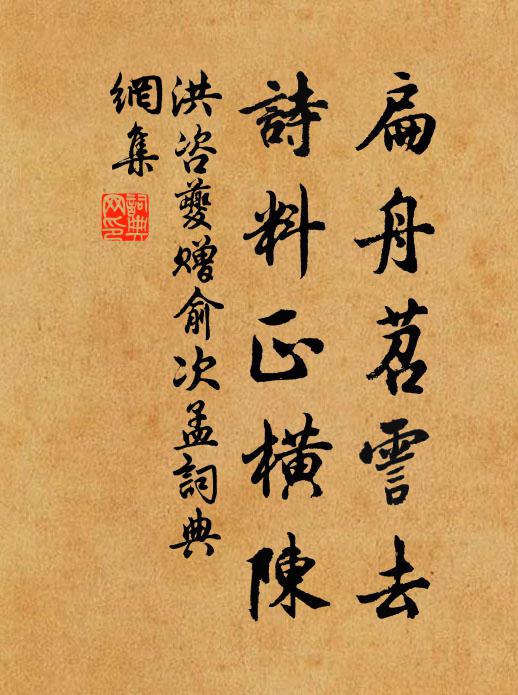 扁舟苕霅去
詩料正橫陳
洪咨夔贈俞次孟詞典
網集
詞典網印